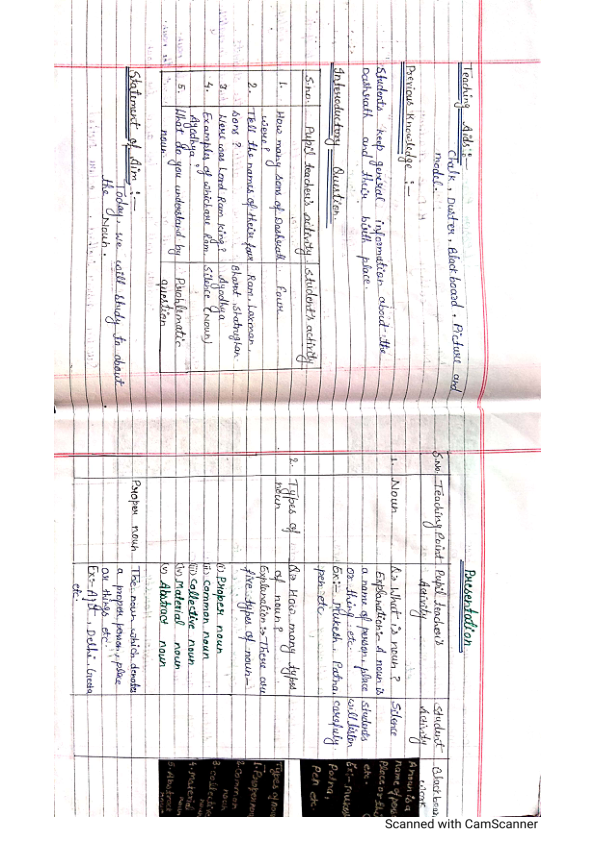 Teaching Aids:-
Chalk, Duster, Blackboard, Picture and
model.
Previous Knowledge :-
Students keep general information about the
Dashrath and their birth place.
Introductory Question
S.no. Pupil teacher's activity Student's activity
1. How many sons of Dashrath Four
were?
2. Tell the names of their four Ram, Laxman,
sons? Bharat, Shatrughan
3. Where was Lord Ram King? Ayodhya
4. Examples of which are Ram, Silence (Noun)
Ayodhya
5. What do you understand by Problematic
noun. question
Statement of Aim :-
Today, we will study to about
the Noun.
Presentation
S.No. Teaching Point Pupil teacher's Student Blackboard
Activity Activity work
1. Noun Q:1 What is noun? Silence
Explanation:- A noun is
a name of person, place students
or thing etc. will listen
Ex:- Mukesh, Patna, carefully
pen etc.
A noun is a
name of
place or
etc.
Ex:-
Patna,
Pen etc
2. Types of Q:2 How many types
noun of noun?
Explanation:- There are
five types of noun-
(i) Proper noun
(ii) Common noun
(iii) Collective noun
(iv) Material noun
(v) Abstract noun
Types of
1. Proper
2. Common
noun
3. Collective
noun
4. Material
noun
5. Abstract
noun
Proper noun The noun which denotes
a proper person, place
or things etc.
Ex:- Ajit, Delhi, Geeta
etc.
Scanned with CamScanner